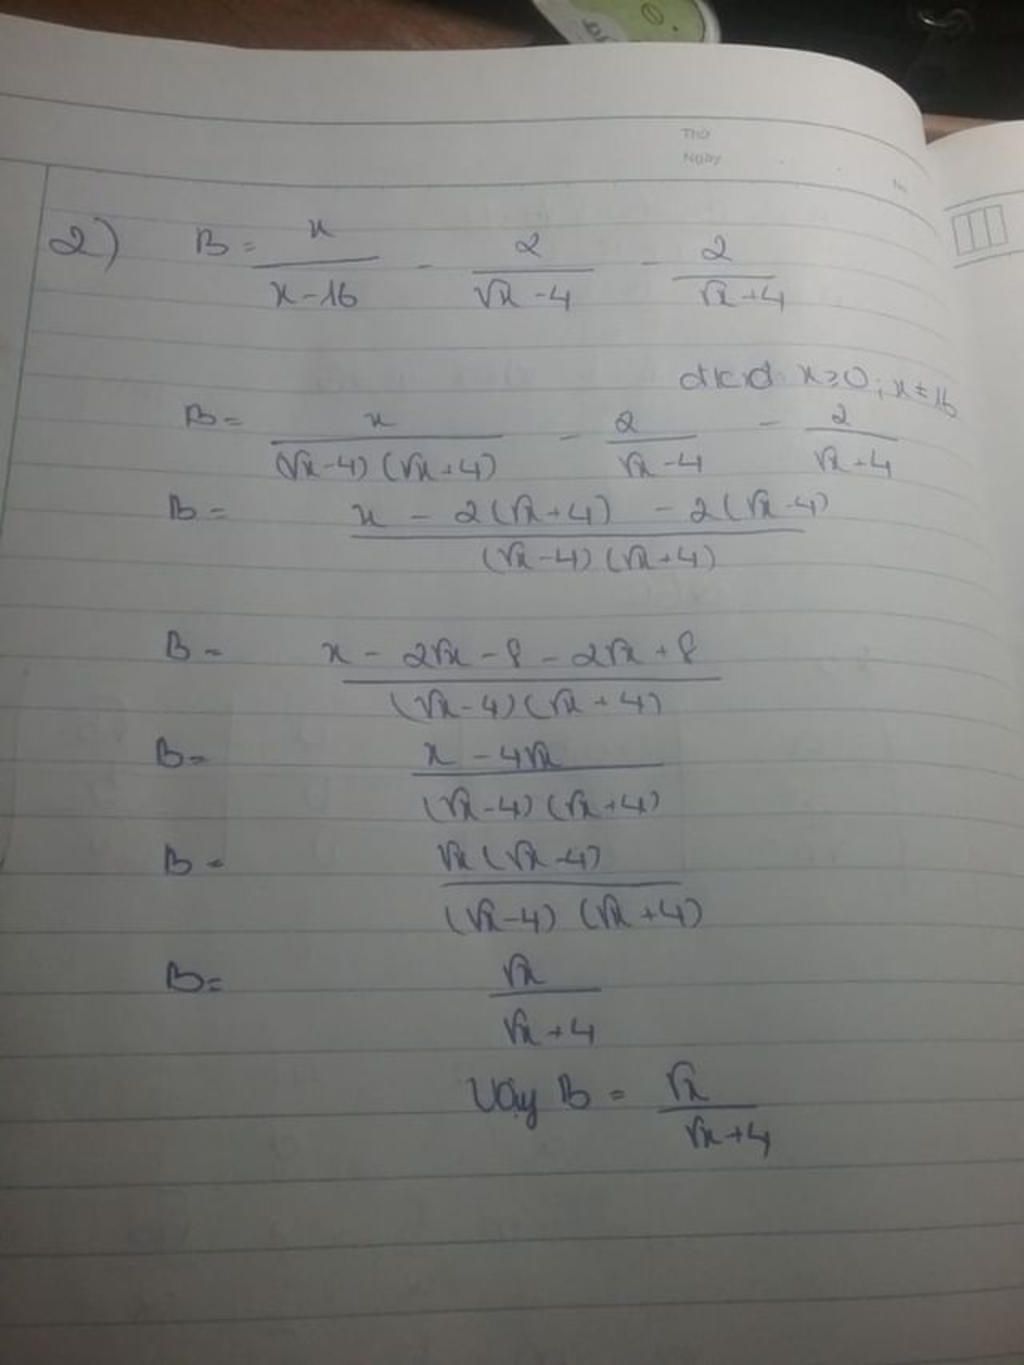 Thứ
Ngày
No.
2) B = x/(x-16) - 2/(√x-4) - 2/(√x+4)
đkxđ x≥0; x≠16
B = x/((√x-4)(√x+4)) - 2/(√x-4) - 2/(√x+4)
B = (x - 2(√x+4) - 2(√x-4))/((√x-4)(√x+4))
B = (x - 2√x - 8 - 2√x + 8)/((√x-4)(√x+4))
B = (x - 4√x)/((√x-4)(√x+4))
B = (√x(√x-4))/((√x-4)(√x+4))
B = √x/(√x+4)
Vậy B = √x/(√x+4)